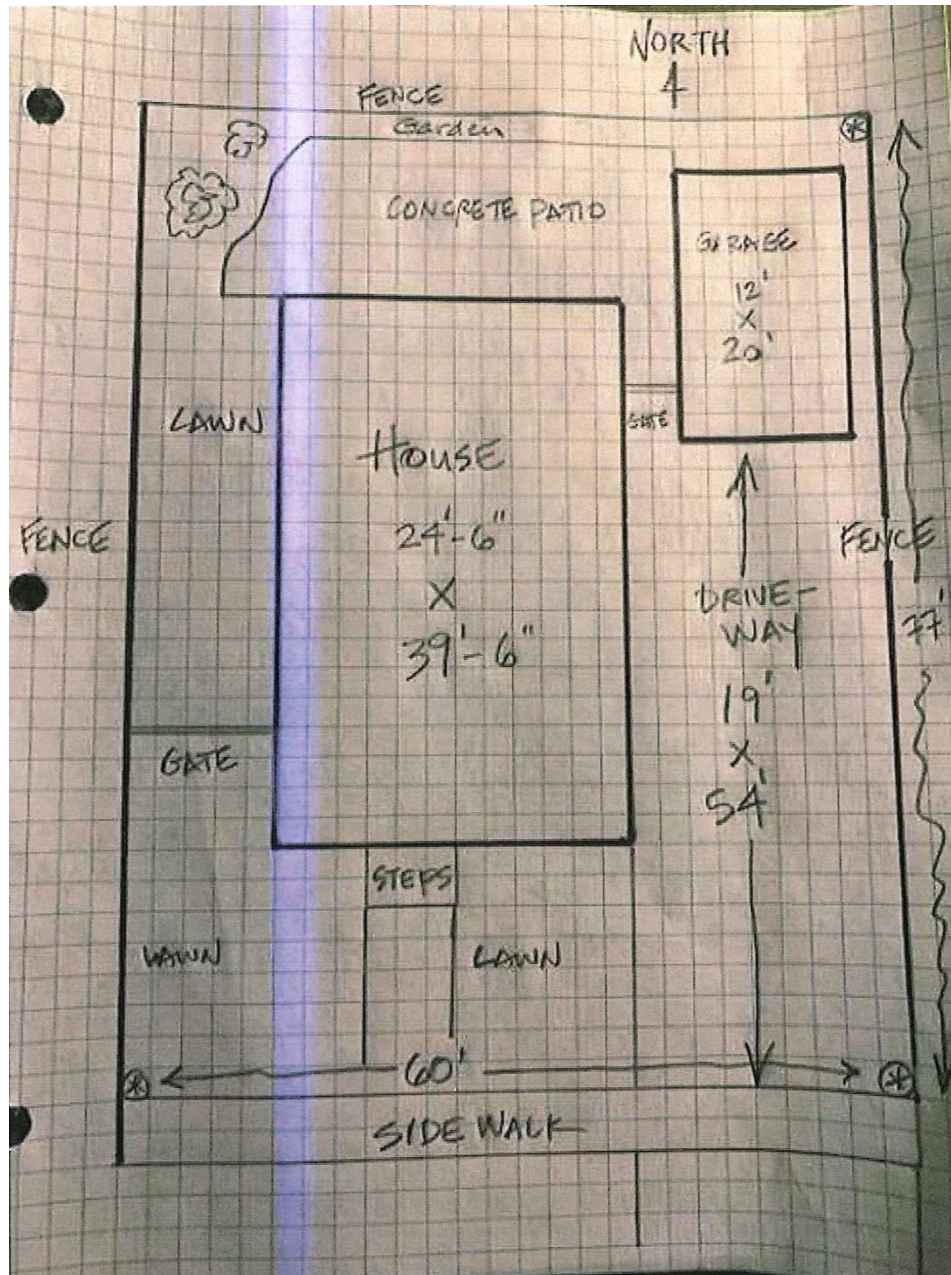 NORTH
FENCE
Garden
CONCRETE PATIO
GARAGE
12'
X
20'
LAWN
GATE
HOUSE
24'-6"
X
39'-6"
FENCE
FENCE
DRIVE-
WAY
19'
X
54'
77'
GATE
STEPS
LAWN
LAWN
60'
SIDE WALK